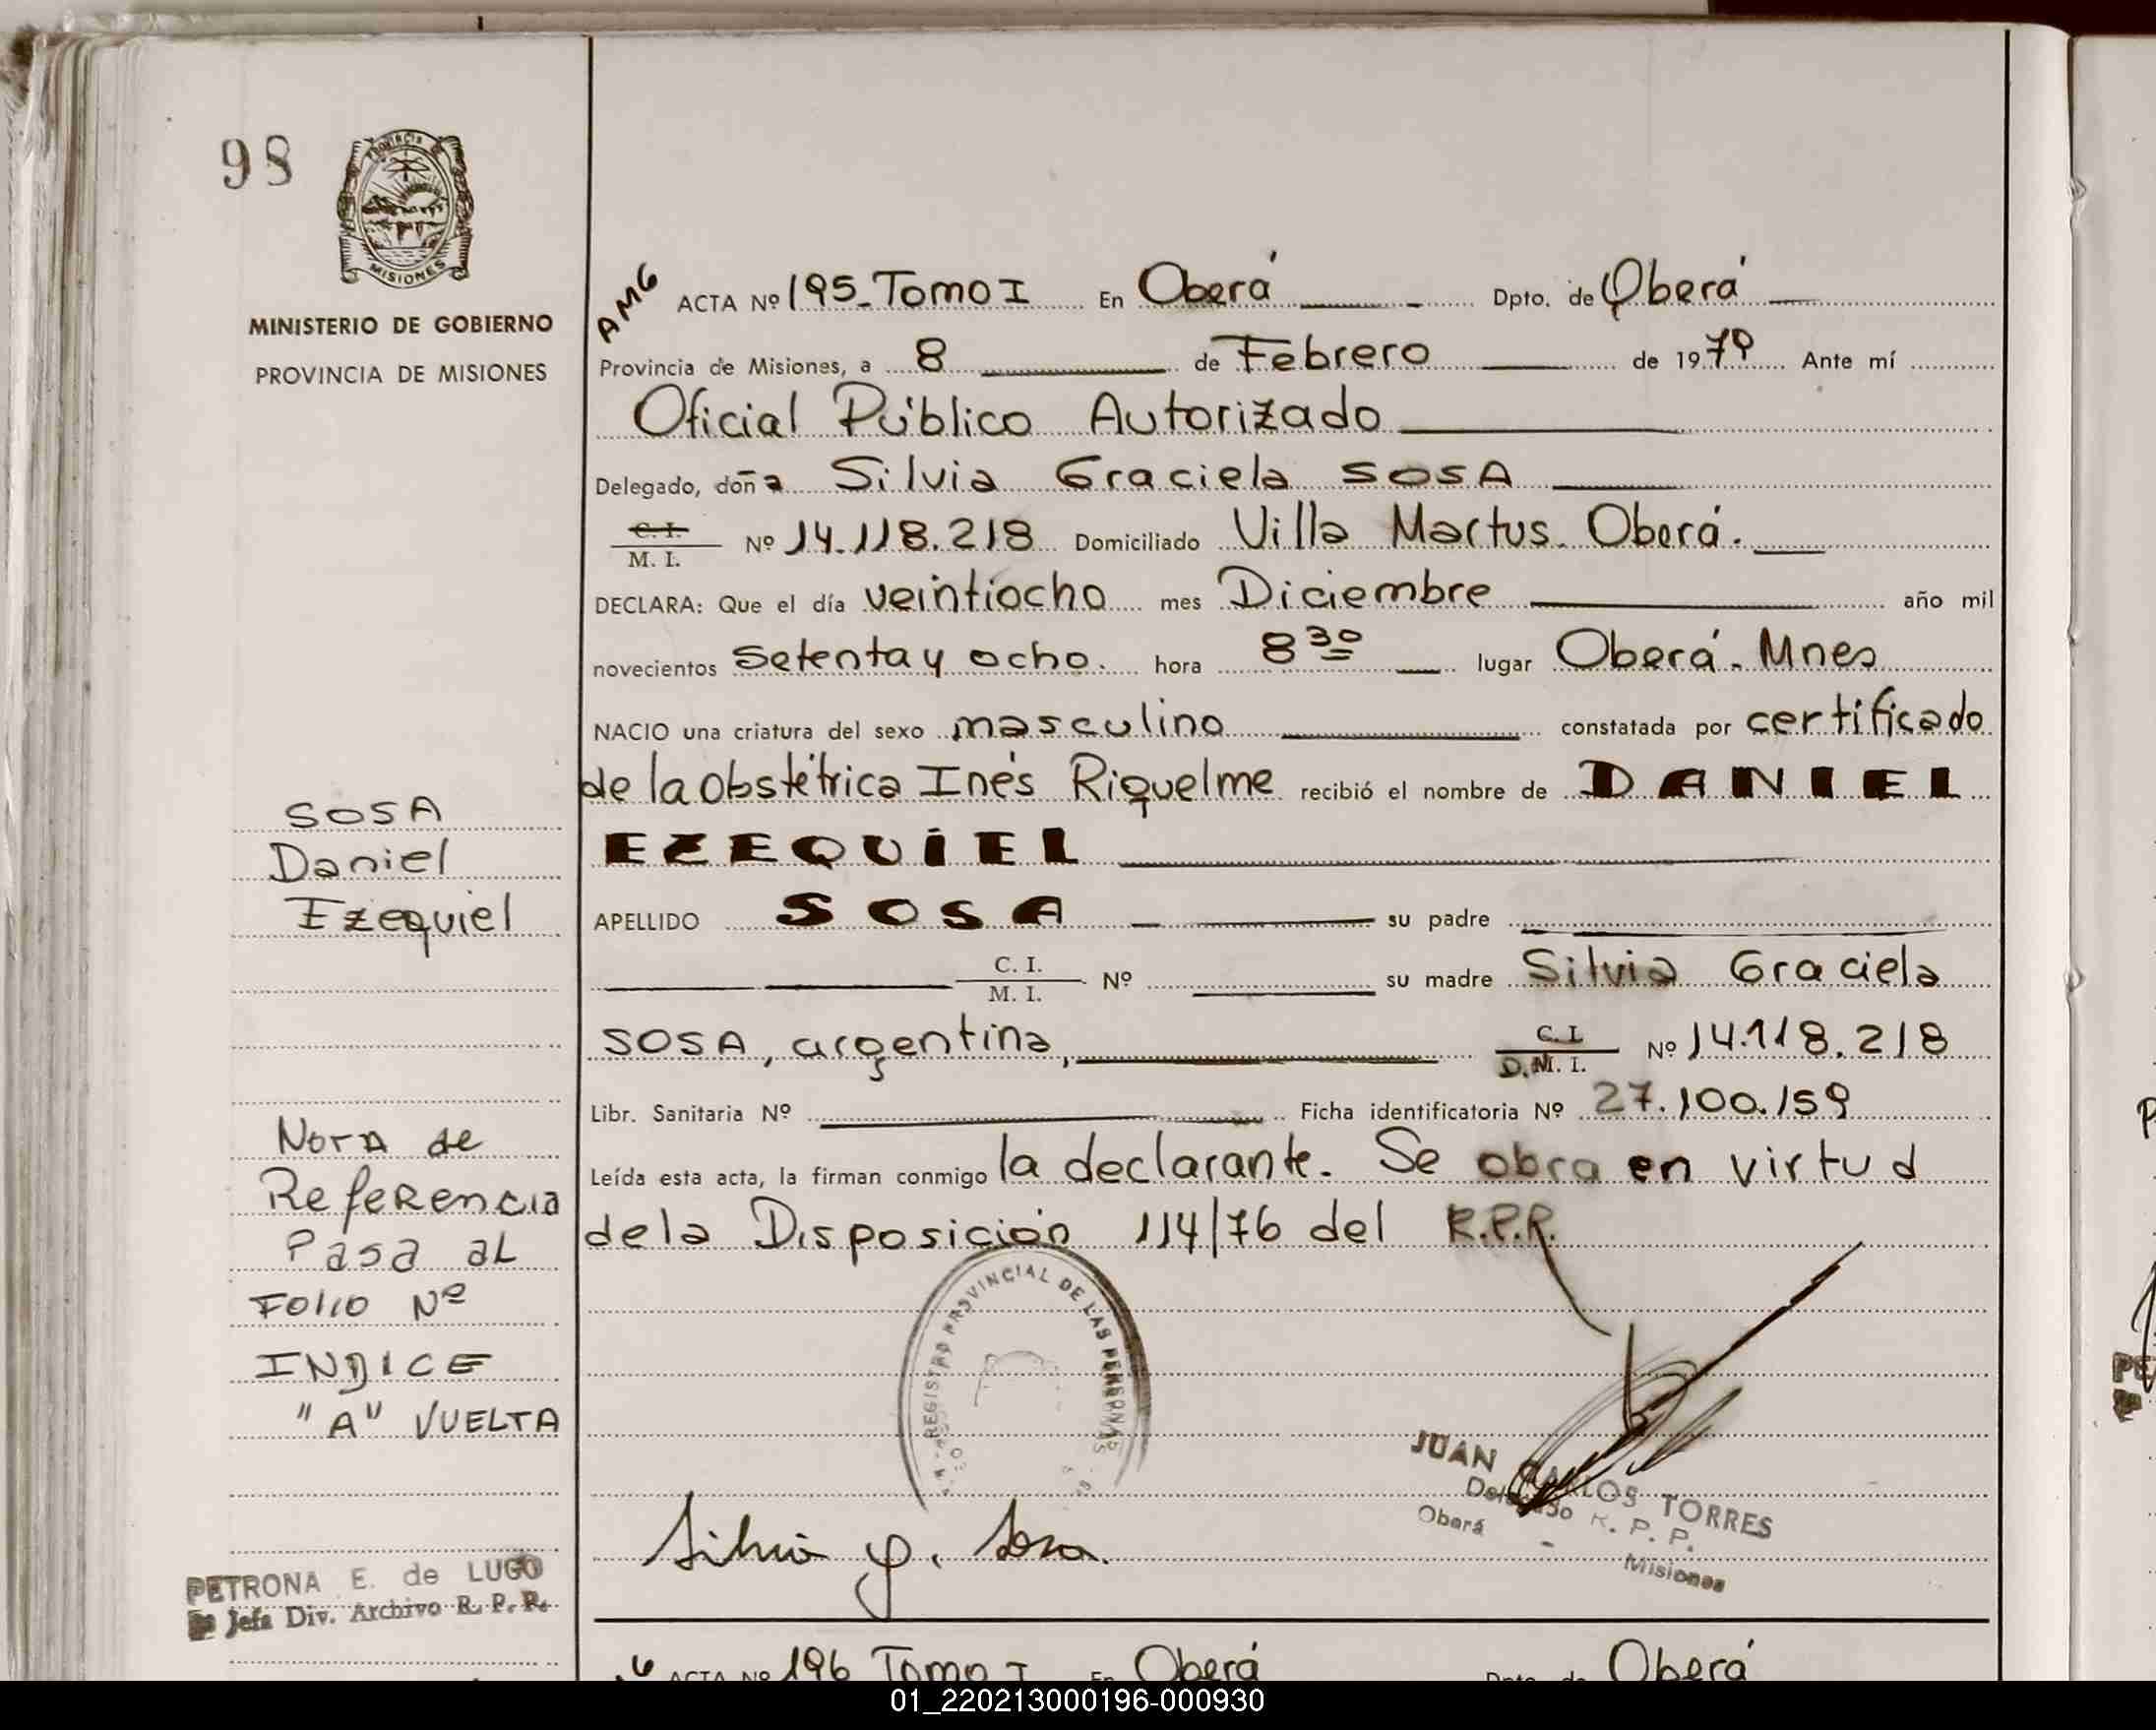 98
PROVINCIA DE
MISIONES
MINISTERIO DE GOBIERNO
PROVINCIA DE MISIONES
SOSA
Daniel
Ezequiel
Nota de
Referencia
Pasa al
Folio Nº
INDICE
"A" VUELTA
PETRONA E. de LUGO
Jefa Div. Archivo R. P. P.
AMG
ACTA Nº 195-Tomo I En Oberá Dpto. de Oberá
Provincia de Misiones, a 8 de Febrero de 1979 Ante mí
Oficial Público Autorizado
Delegado, doña Silvia Graciela SOSA
C. I.
M. I. Nº 14.118.218 Domiciliado Villa Martus. Oberá.
DECLARA: Que el día veintiocho mes Diciembre año mil
novecientos setenta y ocho. hora 8 30 lugar Oberá. Mnes
NACIO una criatura del sexo masculino constatada por certificado
de la obstétrica Inés Riquelme recibió el nombre de DANIEL
EZEQUIEL
APELLIDO SOSA su padre
C. I.
M. I. Nº su madre Silvia Graciela
SOSA, argentina, C. I.
D.M. I. Nº 14.118.218
Libr. Sanitaria Nº Ficha identificatoria Nº 27.100.159
Leída esta acta, la firman conmigo la declarante. Se obra en virtud
de la Disposición 114/76 del R.P.P.
REGISTRO PROVINCIAL DE LAS PERSONAS
JUAN CARLOS TORRES
Delegado R. P. P.
Oberá - Misiones
Silvia G. Sosa.
ACTA Nº 196 Tomo I En Oberá Dpto. de Oberá
01_220213000196-000930